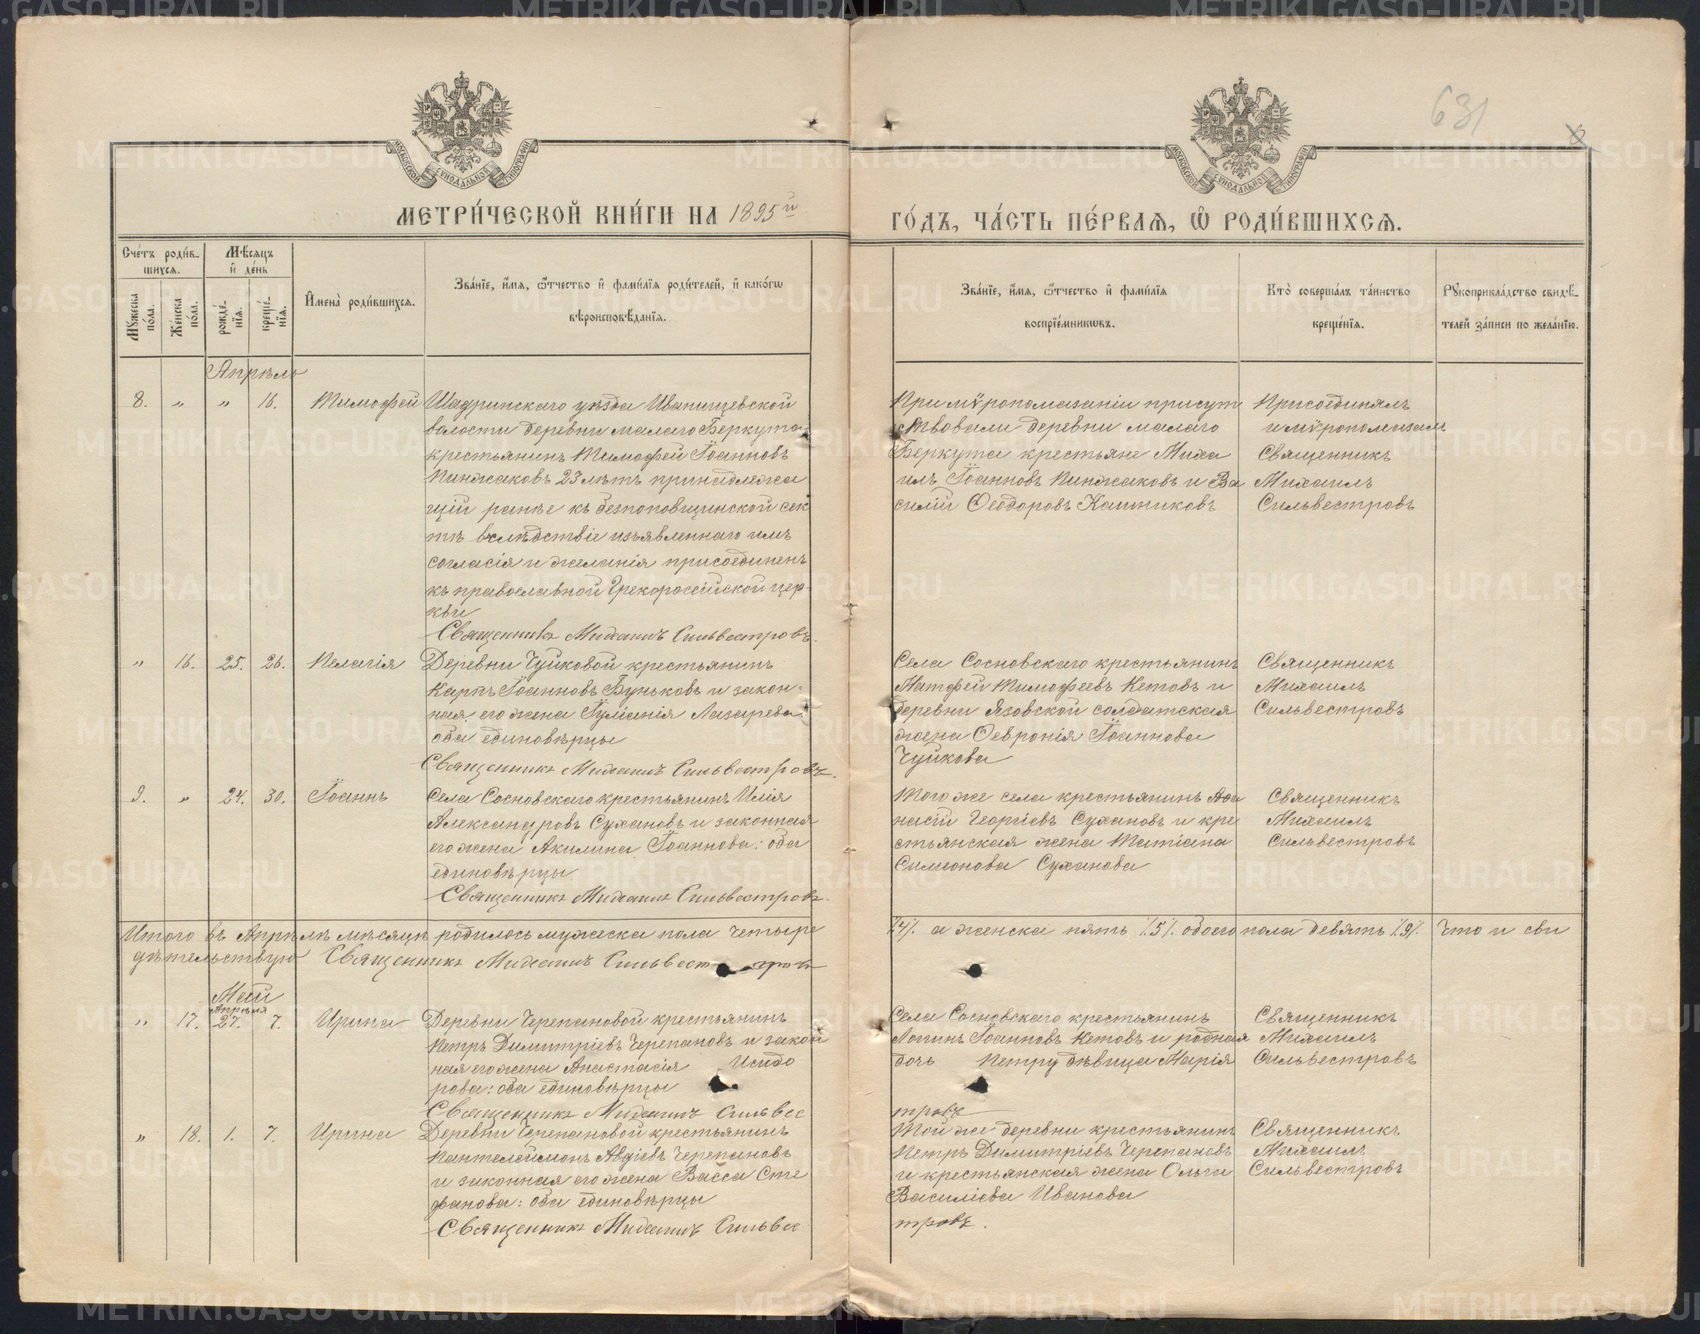 МЕТРИ́ЧЕСКОЙ КНИ́ГИ НА 1895й
ГО́ДЪ, ЧА́СТЬ ПЕ́РВАЯ, Ѿ РОДИ́ВШИХСЯ.
631
МОСКОВСКОЙ СУНОДАЛЬНОЙ ТИПОГРАФІИ
МОСКОВСКОЙ СУНОДАЛЬНОЙ ТИПОГРАФІИ
Сче́тъ роди́в-
шихся.
Мꙋ́жеска по́ла.
Же́нска по́ла.
Мѣ́сяцъ
и҆ де́нь
рожде́-
нїя.
креще́-
нїя.
И҆мена̀ роди́вшихся.
Зва́нїе, и҆́мя, ѻ҆́тчество и҆ фами́лїя роди́телей, и҆ како́гѡ
вѣроисповѣ́данїя.
Зва́нїе, и҆́мя, ѻ҆́тчество и҆ фами́лїя
воспрїе́мникѡвъ.
Кто̀ соверша́лъ та́инство
креще́нїя.
Рꙋкоприкла́дство свидѣ́-
телей за́писи по жела́нїю.
Апрѣль
8. " " 16. Тимофей
Шадринскаго уѣзда Иванищевской
волости деревни малаго Беркута
крестьянинъ Тимофей Іоанновъ
Пинжаковъ 23 лѣтъ принадлежа
щій ранѣе къ безпоповщинской сек
тѣ вслѣдствіе изъявленнаго имъ
согласія и желанія присоединенъ
къ православной Грекоросейской цер-
кви
Священникъ Михаилъ Сильвестровъ.
При мѵропомазаніи присут
ствовали деревни малаго
Беркута крестьяне Миха
илъ Іоанновъ Пинжаковъ и Ва
силій Ѳеодоровъ Кашниковъ
Присоединялъ
и мѵропомазалъ
Священникъ
Михаилъ
Сильвестровъ
" 16. 25. 26. Пелагія
Деревни Чуйковой крестьянинъ
Карпъ Іоанновъ Буньковъ и закон-
ная его жена Іуліанія Лазарева:
оба единовѣрцы
Священникъ Михаилъ Сильвестровъ.
Села Сосновскаго крестьянинъ
Матфей Тимофеевъ Кетовъ и
деревни Язовской солдатская
жена Ѳевронія Іоаннова
Чуйкова
Священникъ
Михаилъ
Сильвестровъ
9. " 24. 30. Іоаннъ
Села Сосновскаго крестьянинъ Илія
Александровъ Сухановъ и законная
его жена Акилина Іоаннова: оба
единовѣрцы
Священникъ Михаилъ Сильвестровъ.
Того же села крестьянинъ Аѳа
насій Георгіевъ Сухановъ и кре
стьянская жена Татіана
Симеонова Суханова
Священникъ
Михаилъ
Сильвестровъ
Итого въ Апрѣлѣ мѣсяцѣ родилось мужеска пола четыре
/4/. а женска пять /5/. обоего пола девять /9/. Что и сви
дѣтельствую Священникъ Михаилъ Сильвестровъ
Май
Апрѣля
" 17. 27. 7. Ирина
Деревни Черепановой крестьянинъ
Петръ Димитріевъ Черепановъ и закон
ная его жена Анастасія Исидо
рова: оба единовѣрцы
Священникъ Михаилъ Сильвес
Села Сосновскаго крестьянинъ
Іоанновъ Кетовъ и родная
дочь Петру дѣвица Марія
тровъ
Священникъ
Михаилъ
Сильвестровъ
" 18. 1. 7. Ирина
Деревни Черепановой крестьянинъ
Пантелеймонъ Авдіевъ Черепановъ
и законная его жена Васса Сте
фанова: оба единовѣрцы
Священникъ Михаилъ Сильвес
Той же деревни крестьянинъ
Петръ Димитріевъ Черепановъ
и крестьянская жена Ольга
Василіева Иванова
тровъ.
Священникъ
Михаилъ
Сильвестровъ
METRIKI.GASO-URAL.RU